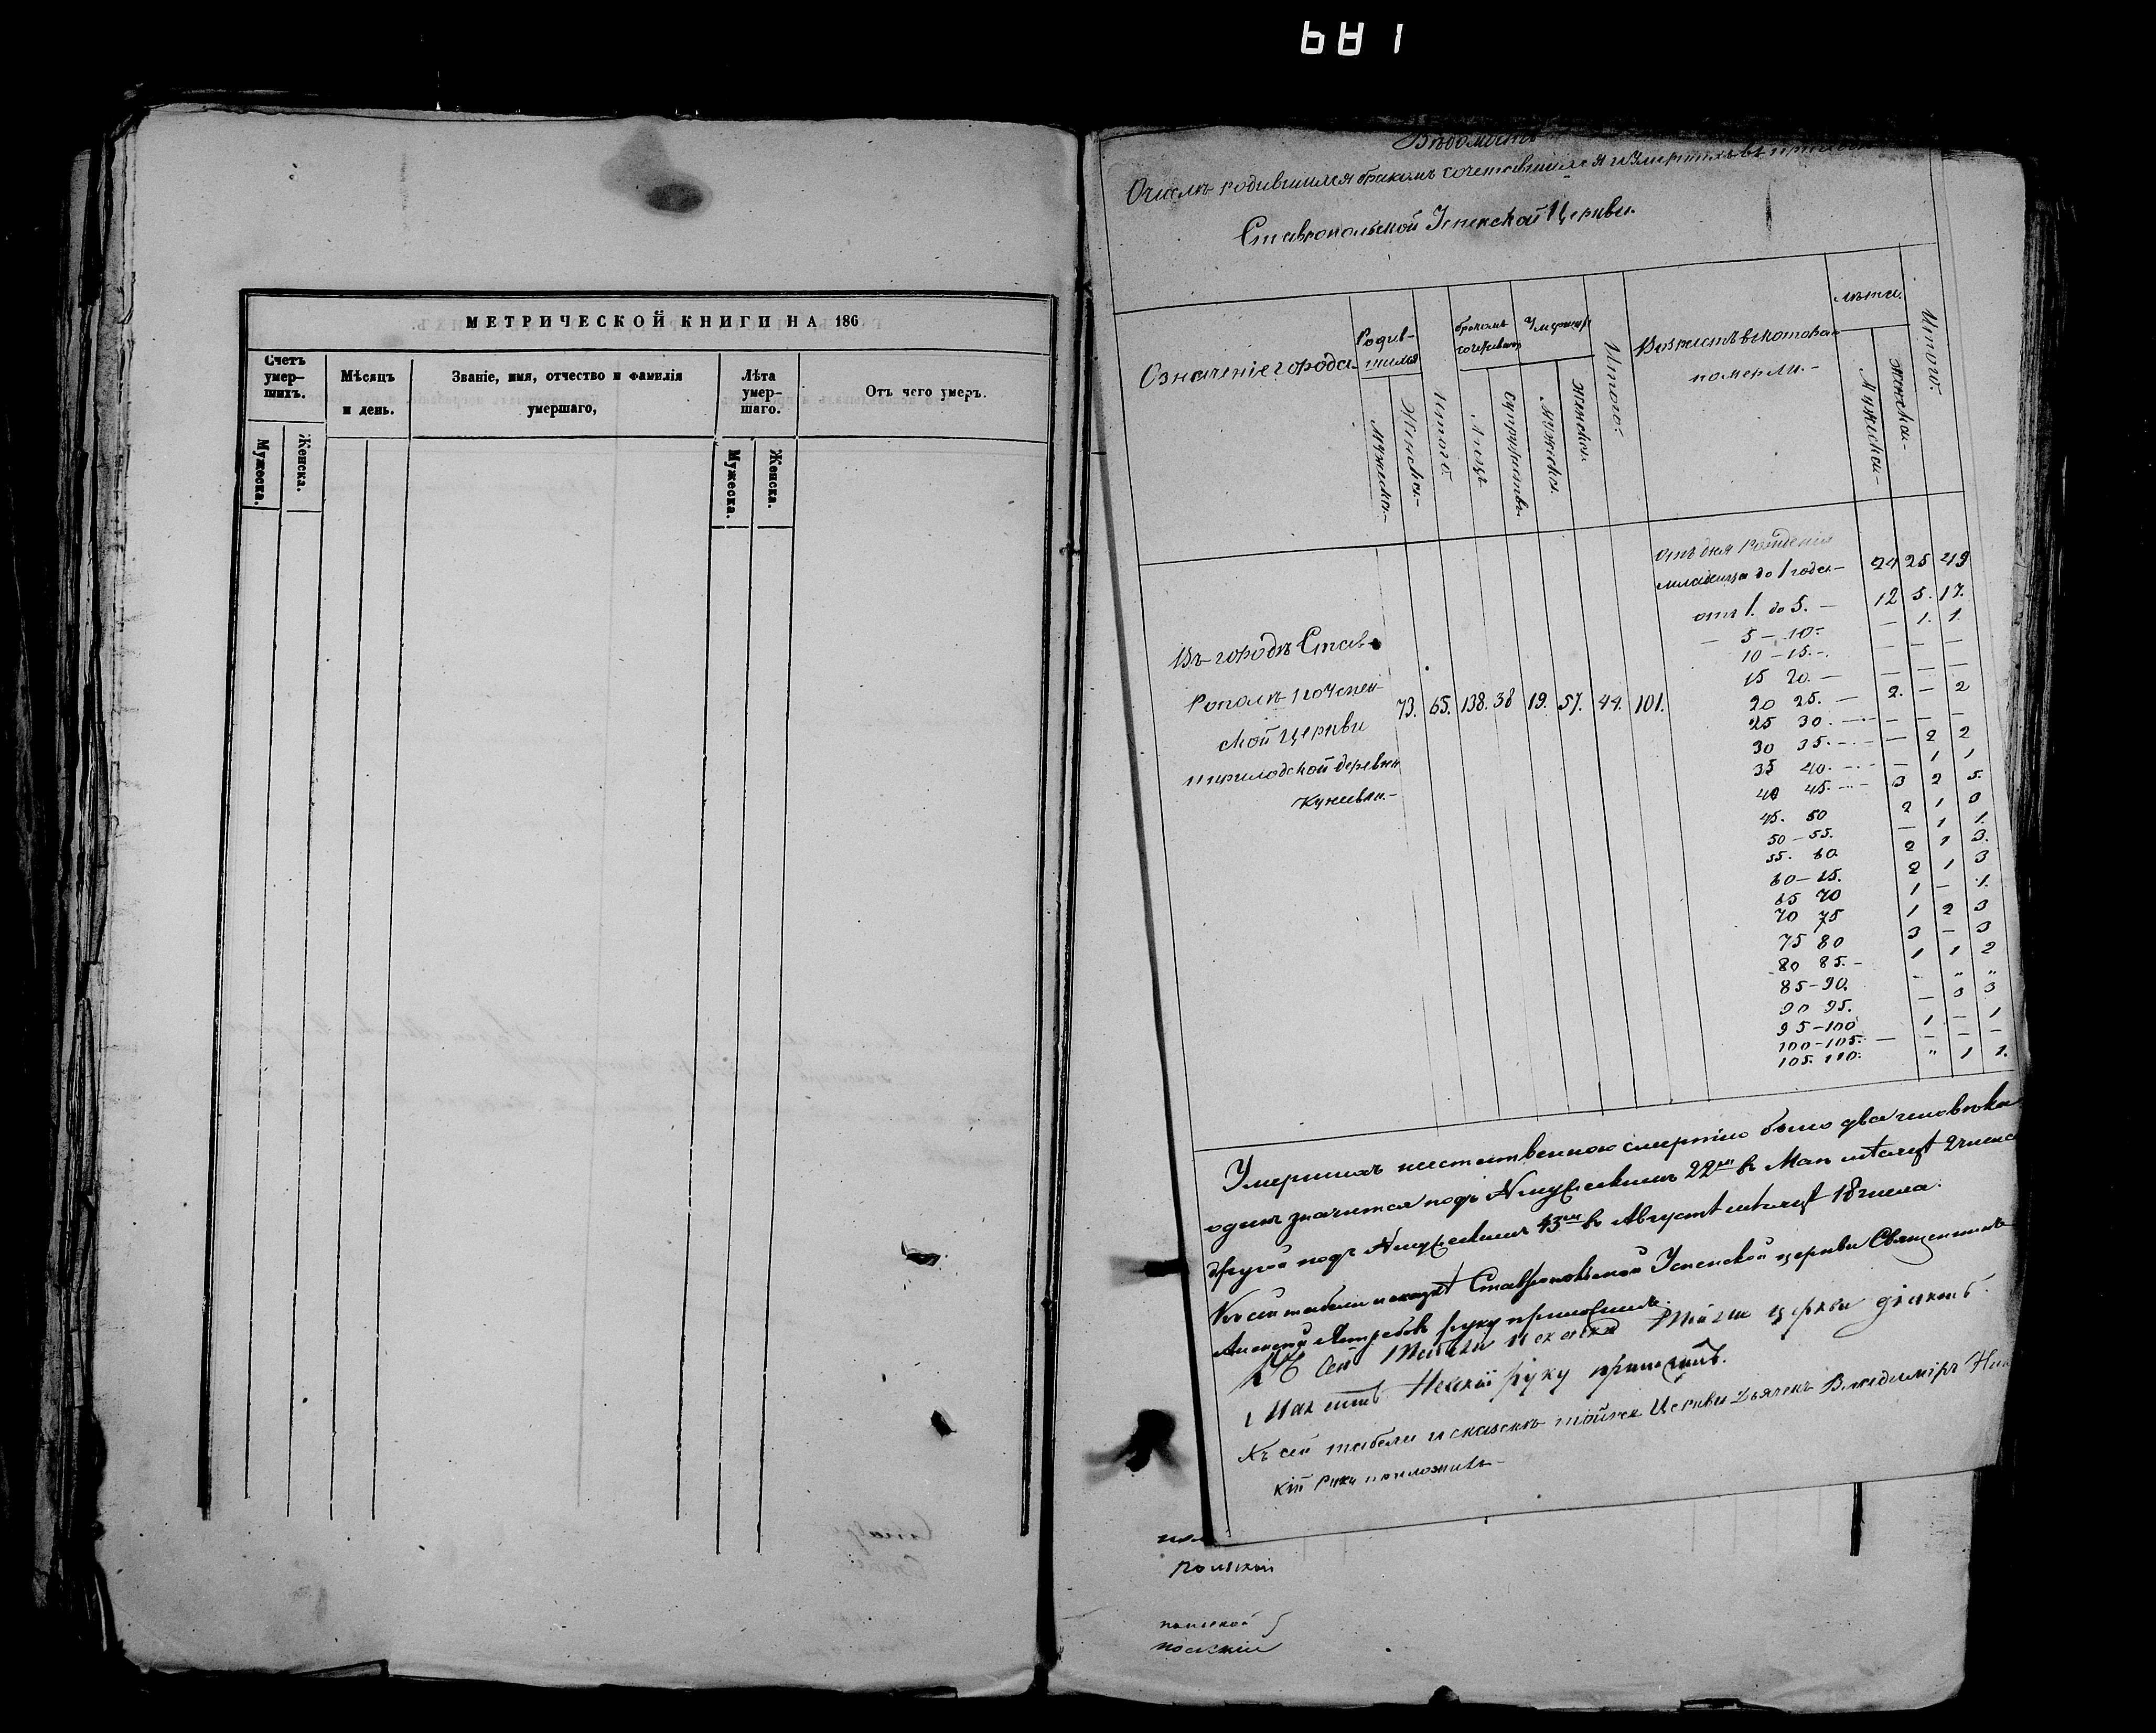 681
МЕТРИЧЕСКОЙ КНИГИ НА 186
Счетъ умер– шихъ.
Мѣсяцъ и день.
Званіе, имя, отчество и фамилія умершаго,
Лѣта умер– шаго.
Отъ чего умеръ.
Мужеска.
Женска.
Мужеска.
Женска.
Вѣдомость
О числѣ родившихся бракомъ сочетавшихся и умершихъ въ приходѣ
Ставропольской Успенской Церкви.
Означеніе города
Родив-
шихся
бракомъ
Умершихъ
Итого:
Возрастъ въ которомъ
померли.-
лѣта.
Итого.
Мужеска-
Женска-
Итого
Лицъ
Супружествъ
Мужеска.
Женска.
Мужеска-
Женска-
отъ дня рожденія
младенца до 1 года- 24 25 49
отъ 1. до 5. — 12 5. 17.
— 5 — 10- — 1. 1
10 — 15.- — — —
15 20. — — — —
Въ городѣ Став-
рополѣ по Успен-
ской Церкви
и приходской деревни
73. 65. 138. 38 19. 57. 44. 101.
20 25. — 2. — 2
25 30. — — —
30 35. — 2 2
35 40. — 1 1
40 45. 3 2 5.
45. 50 2 1 3
50 — 55. — 1 1.
55. 60 2 1 3.
60 — 65. 2 1 3
65 70 1 — 1.
70 75 1 2 3
75 80 3 — 3
80 85. - 1 1 2
85 — 90. - „ „
90 95. — 3 3
95 — 100 1 — 1
100 — 105. — — — —
105. 110. „ 1 1.
Умершихъ неестественною смертію было два человѣка
одинъ значится подъ № мужескимъ 22мъ въ Маѣ мѣсяцѣ 2 числа
другой подъ № мужескимъ 43мъ въ Августѣ мѣсяцѣ 18 числа.
Къ сей табели и сказкѣ Ставропольской Успенской церкви Священникъ
Алексей Ястребовъ руку приложилъ.
Къ сей табели и сказкѣ тойже церкви діаконъ
руку приложилъ.
Къ сей табели и сказкѣ тойже Церкви Дьячекъ Владимиръ
кій руку приложилъ-